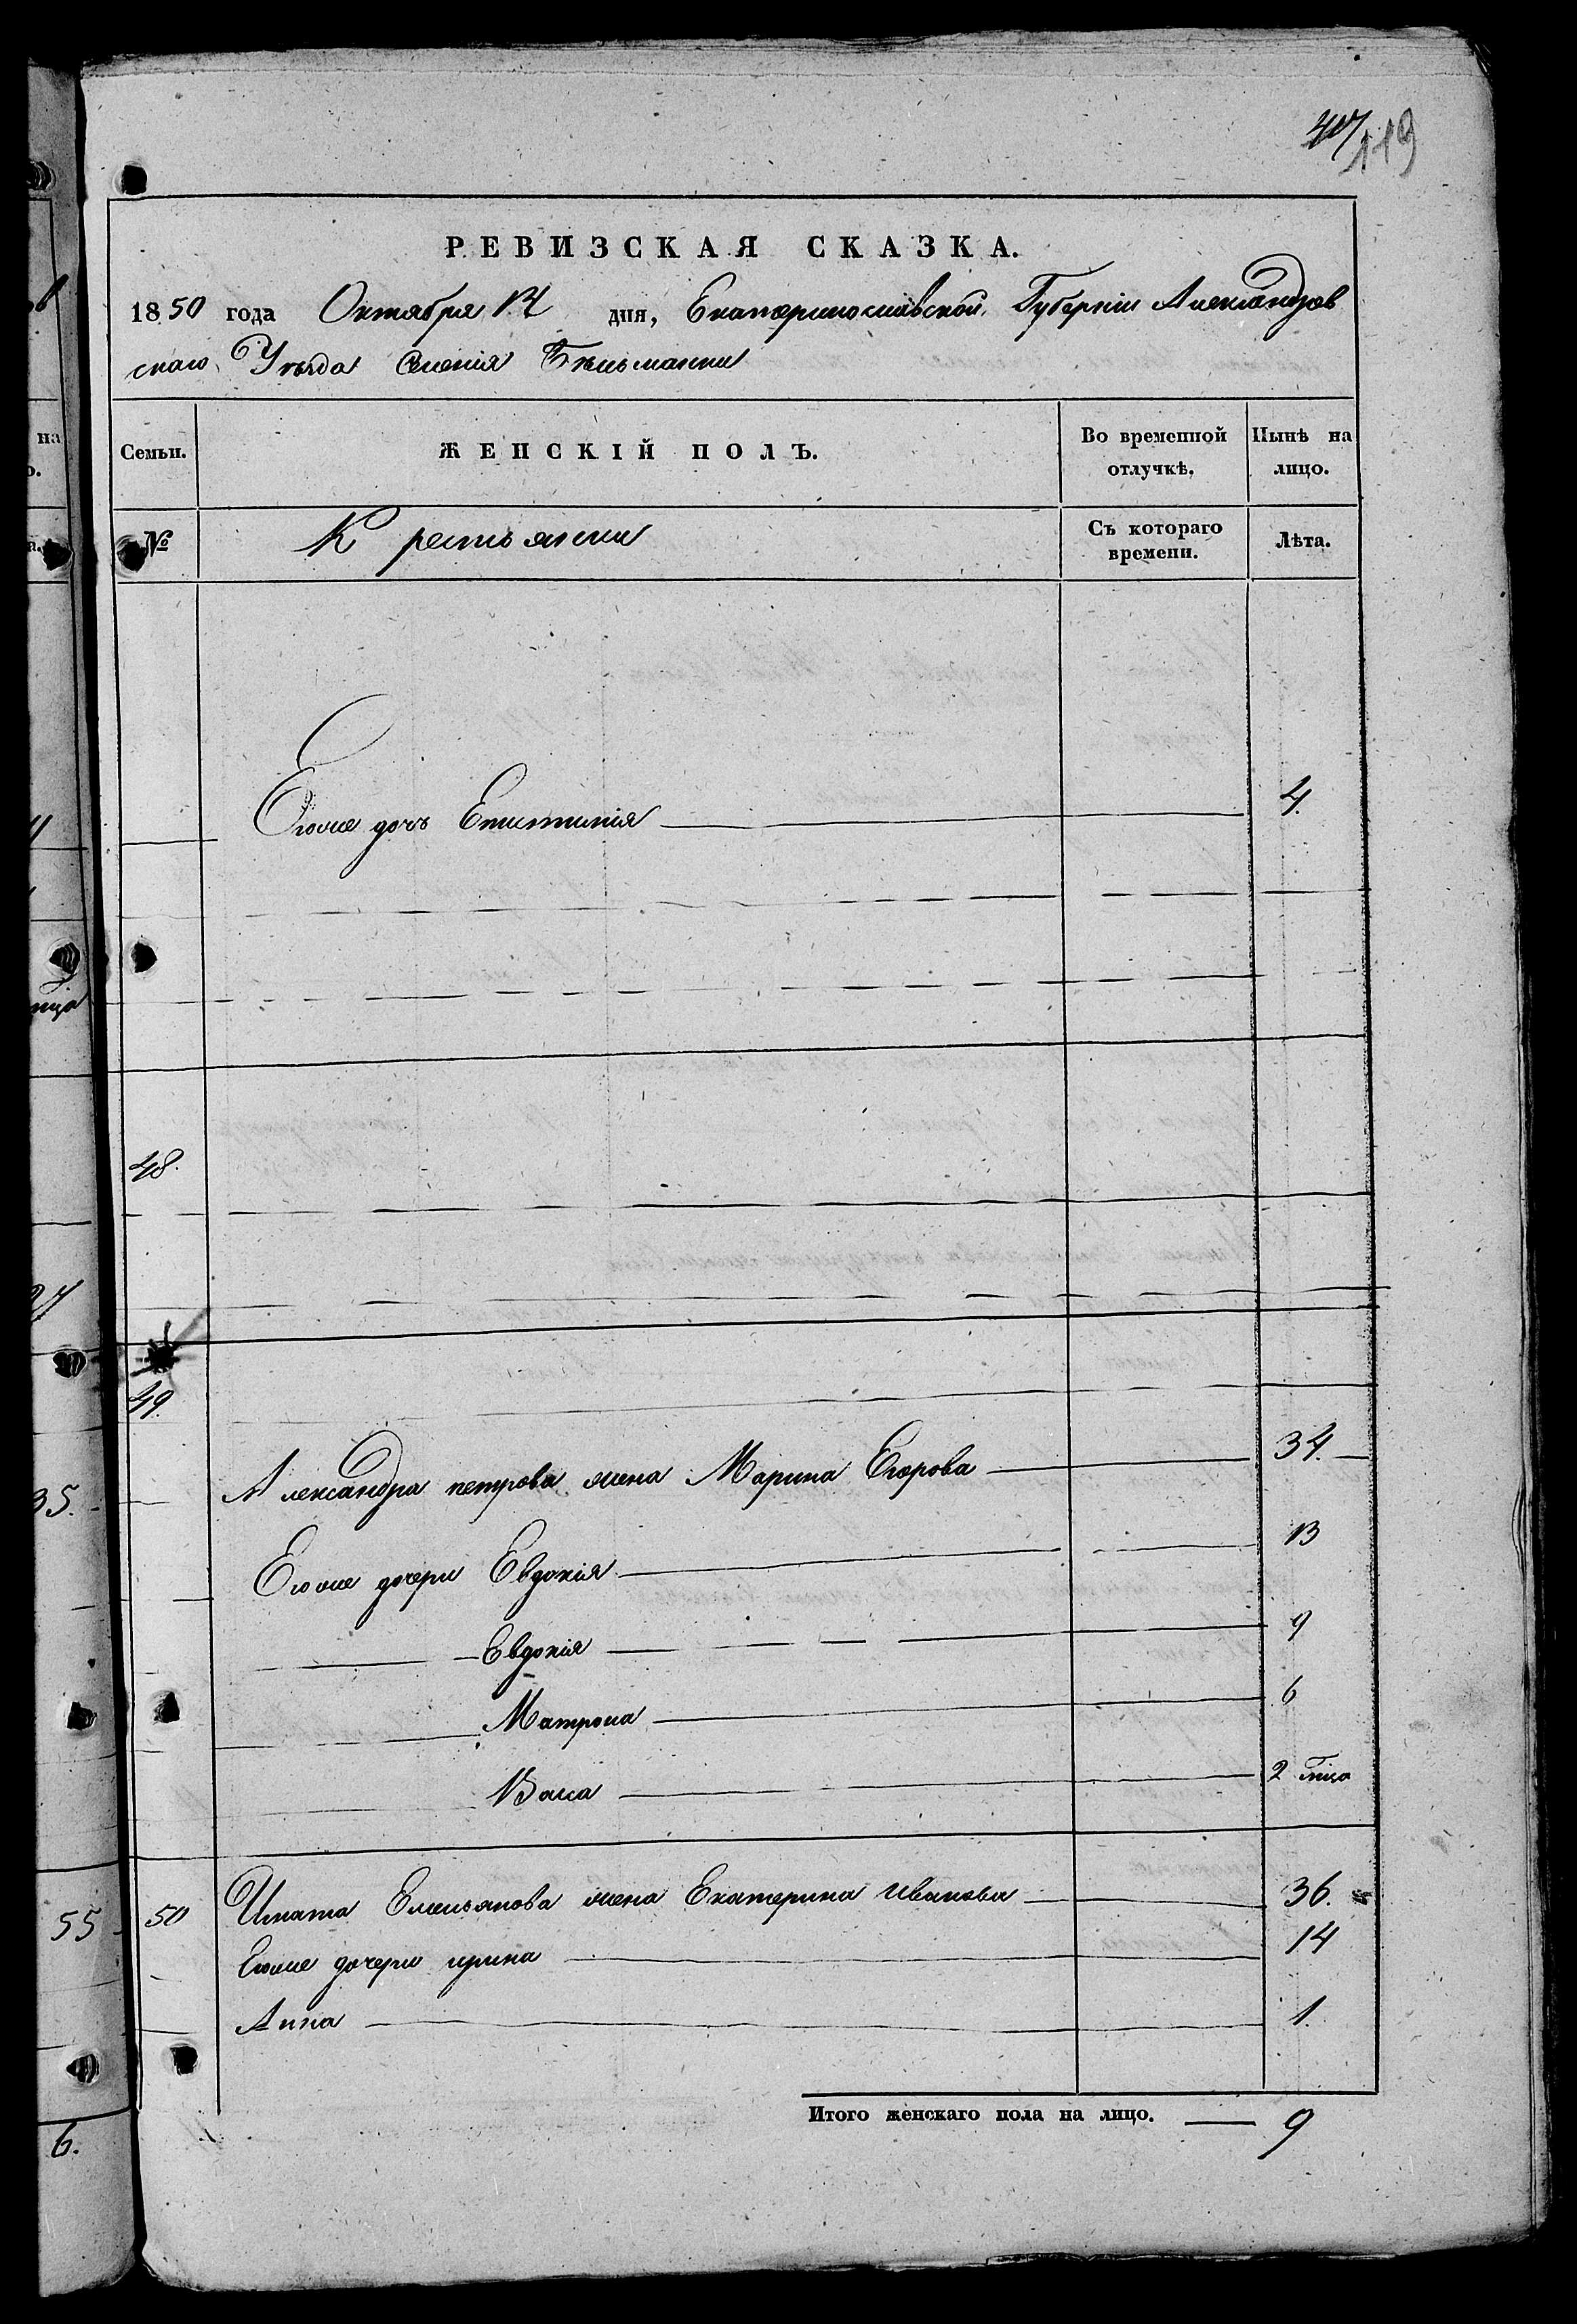 119
РЕВИЗСКАЯ СКАЗКА.
1850 года Октября дня, Екатеринославской Губерніи Александров
скаго Уѣзда Селенія Бѣльманки
Семьи.
ЖЕНСКІЙ ПОЛЪ.
Во временной отлучкѣ.
Нынѣ на лицо.
№
Крестьянки
Съ котораго времени.
Лѣта.
Егоже дочь Епистимія 4.
48.
49.
Александра петрова жена Марина Егорова 34.
Егоже дочери Евдокія 13
Евдокія 9
Матрона 6
Васса 2
50 Игната Емельянова жена Екатерина иванова 36.
Егоже дочери ирина 14
Анна 1.
Итого женскаго пола на лицо. 9
35.
55
6.